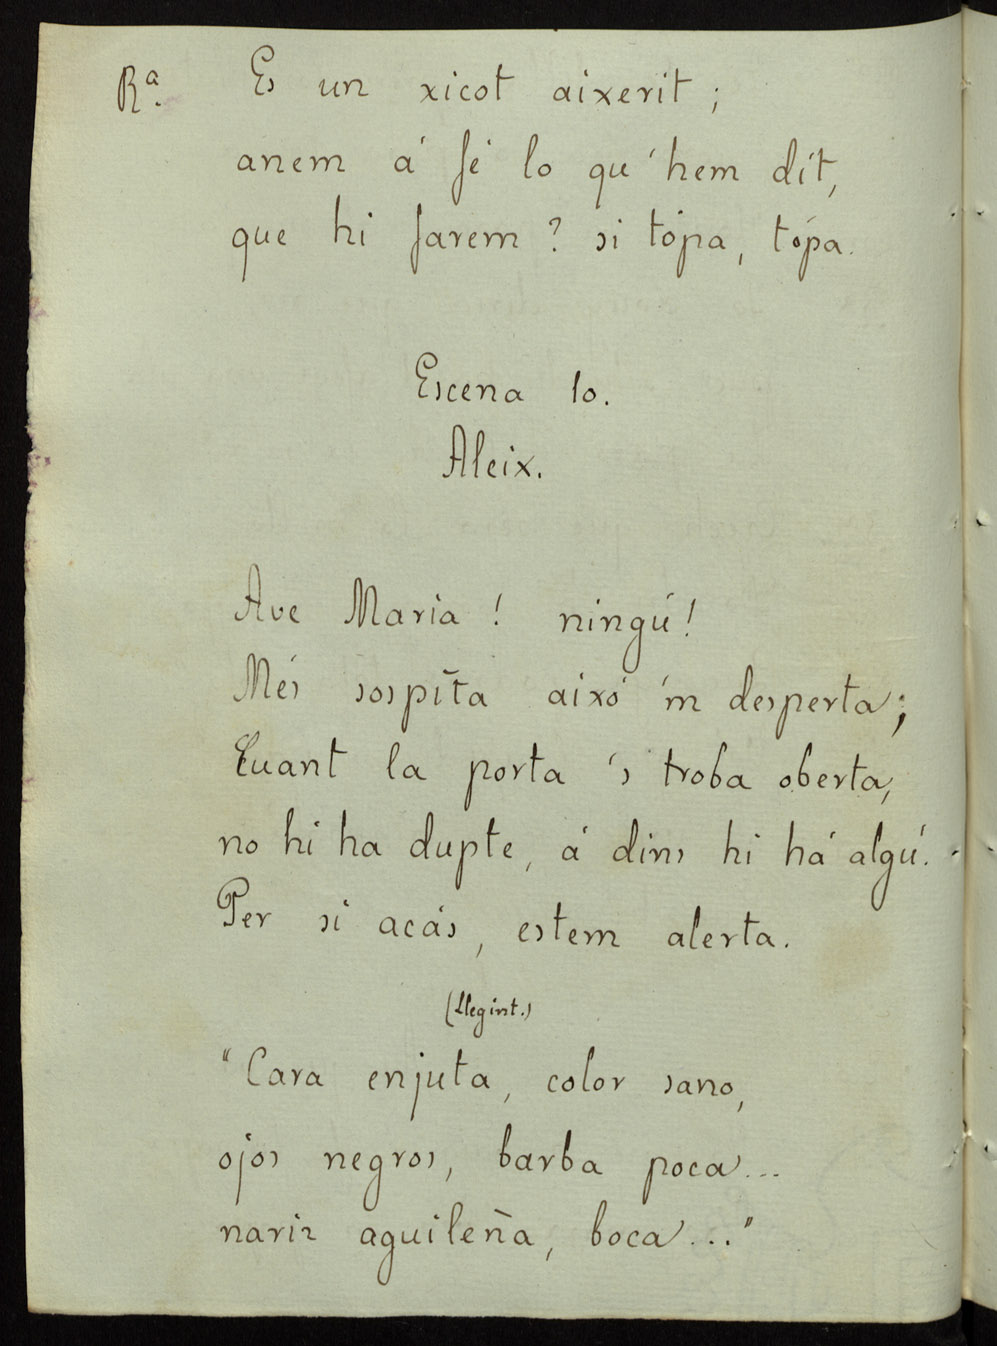 Rª. Es un xicot aixerit;
anem á fé lo qu'hem dít,
que hi farem? si tópa, tópa.
Escena 10.
Aleix.
Ave Maria! ningú!
Més sospita aixó 'm desperta;
Quant la porta 's troba oberta,
no hi ha dupte, á dins hi há algú.
Per si acás, estem alerta.
(Llegint.)
"Cara enjuta, color sano,
ojos negros, barba poca...
nariz aguileña, boca..."